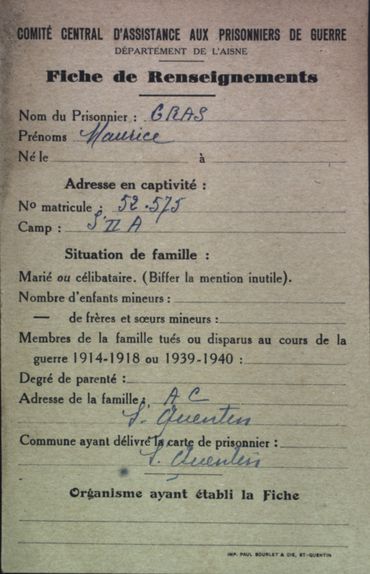 COMITÉ CENTRAL D'ASSISTANCE AUX PRISONNIERS DE GUERRE
DÉPARTEMENT DE L'AISNE
Fiche de Renseignements
Nom du Prisonnier : GRAS
Prénoms Maurice
Né le à
Adresse en captivité :
No matricule : 52.575
Camp : S/ II A
Situation de famille :
Marié ou célibataire. (Biffer la mention inutile).
Nombre d'enfants mineurs :
— de frères et sœurs mineurs :
Membres de la famille tués ou disparus au cours de la
guerre 1914-1918 ou 1939-1940 :
Degré de parenté :
Adresse de la famille : A C
St Quentin
Commune ayant délivré la carte de prisonnier :
St Quentin
Organisme ayant établi la Fiche
IMP. PAUL BOURLET & CIE, ST-QUENTIN